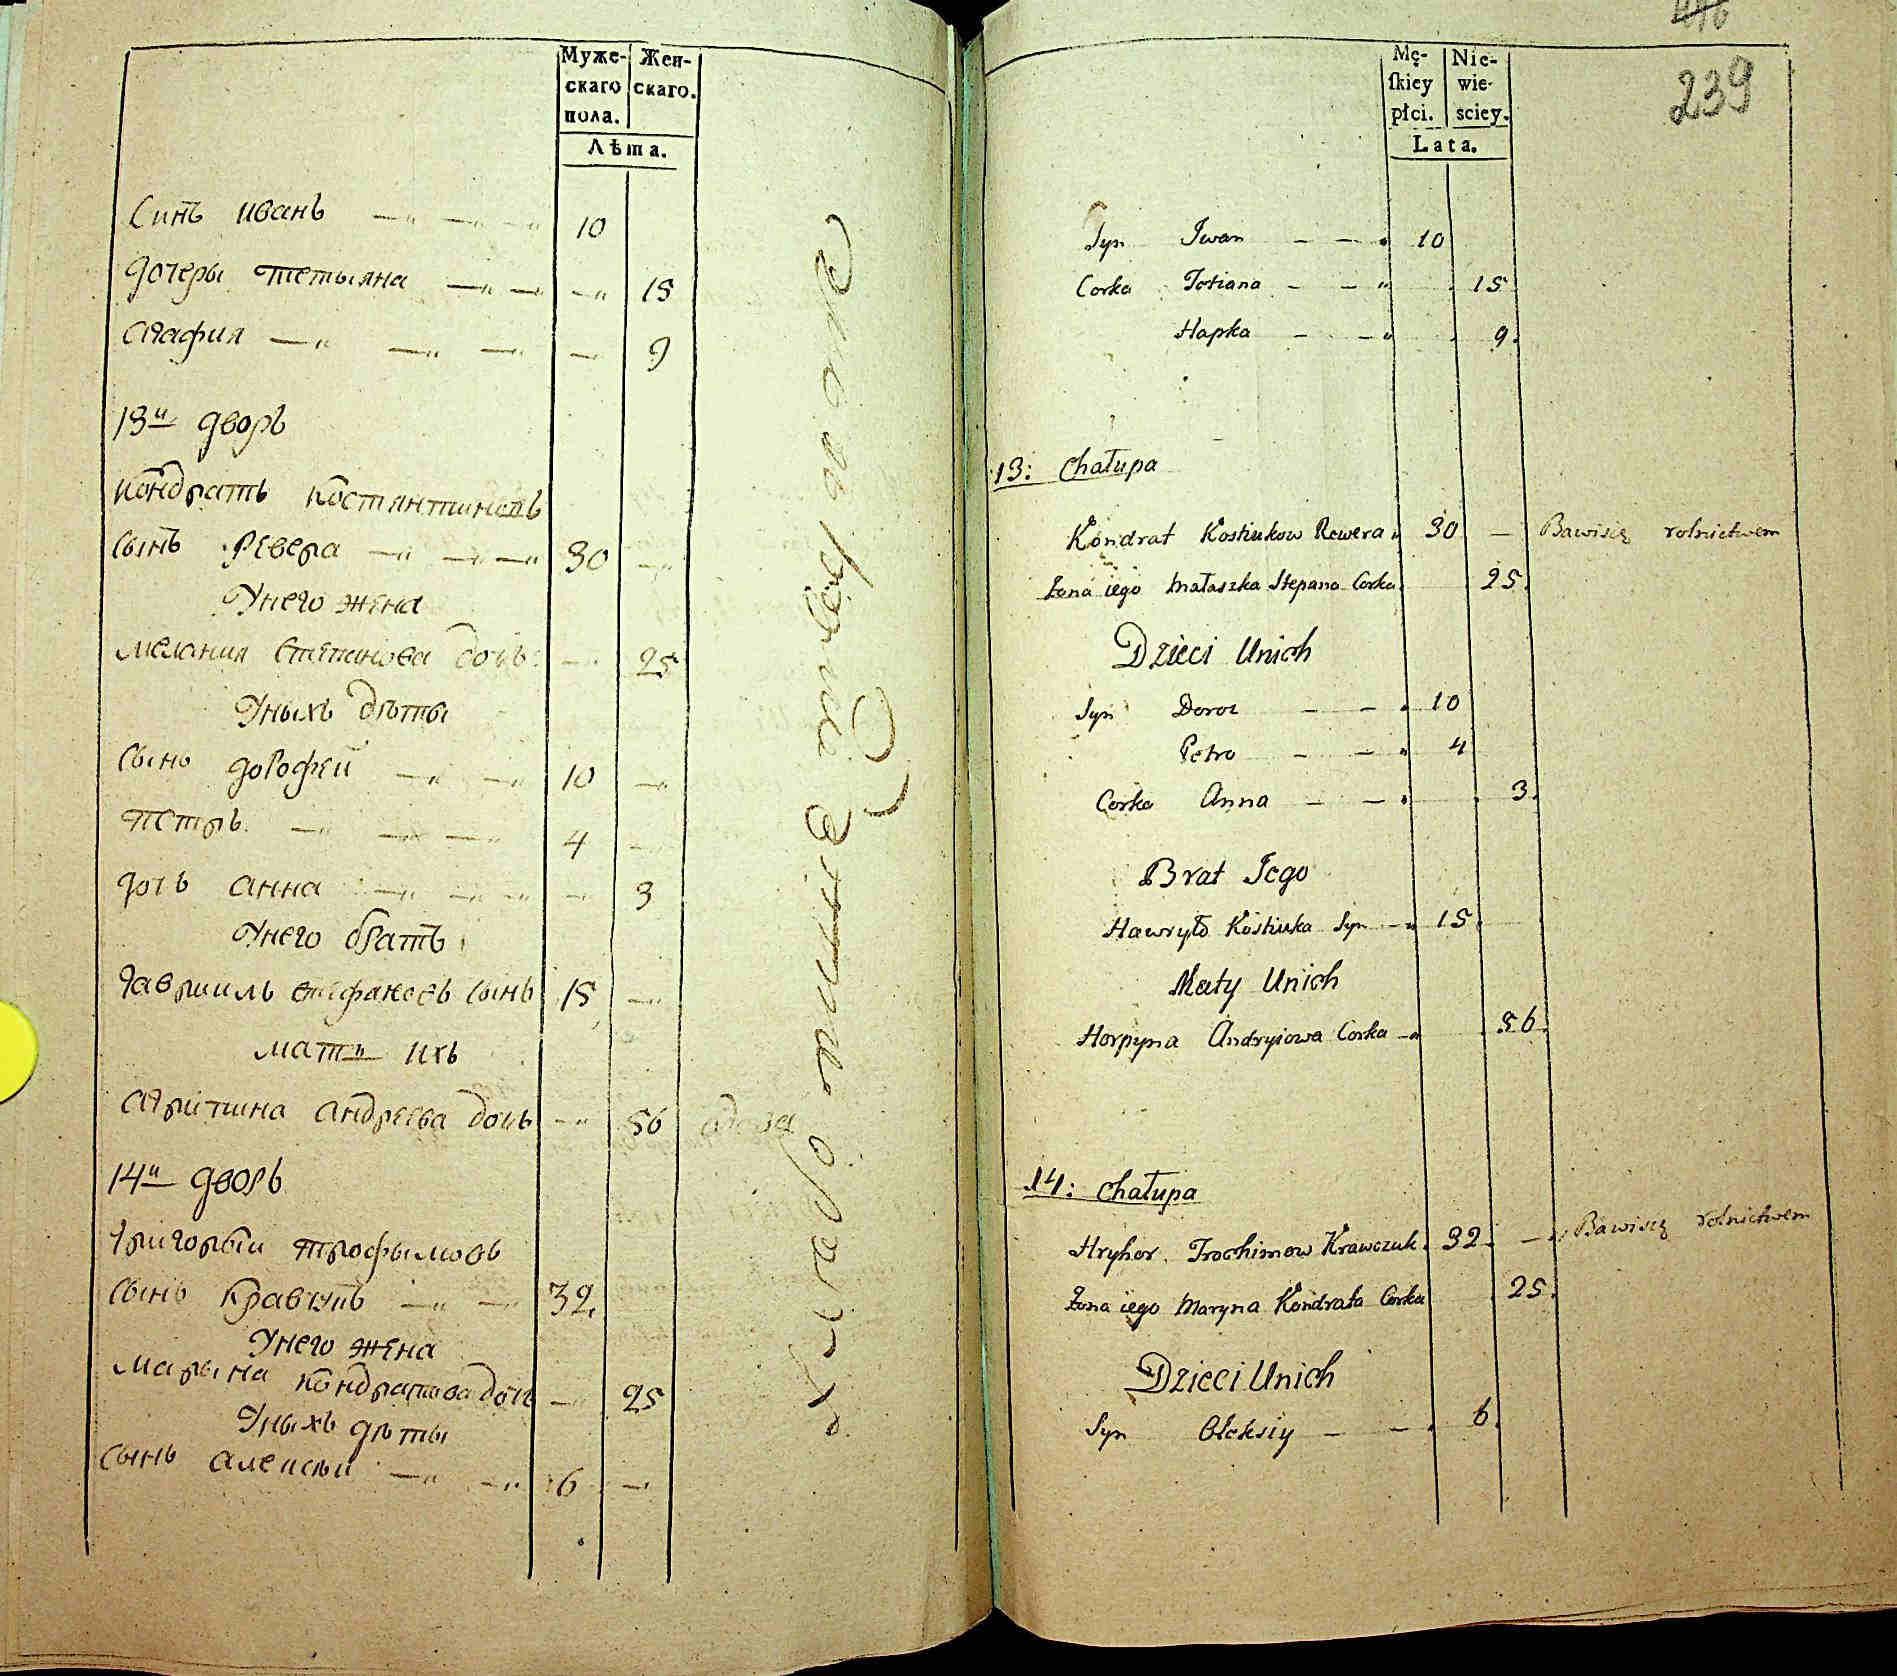 Муже- Жен-
скаго скаго.
пола.
Лѣта.
Синъ иванъ 10
дочеры тетыяна 15
агафия 9
13й дворъ
кондратъ костянтиновъ
сынъ ревера 30
Унего жена
мелания степанова дочь 25
Уныхъ дѣты
сынъ дорофей 10
петръ 4
дочь анна 3
Унего братъ
гавриилъ стефановъ сынъ 15
мати ихъ
агрипина андреева дочь 56 вдова
14й дворъ
григорый трофымовъ
сынъ кравчукъ 32.
Унего жена
марына кондратова дочь 25
Уныхъ дѣты
сынъ алексѣй 6
446
239
Mę- Nie-
skiey wie-
płci. sciey.
Lata.
Syn Iwan 10
Corka Totiana 15
Hapka 9.
13: Chałupa
Kondrat Kostiukow Rewera 30 — Bawisię rolnictwem
Żona iego Małaszka Stepana Corka 25.
Dzieci Unich
Syn Doroz 10
Petro 4
Corka Anna 3.
Brat Iego
Hawryło Kostiuka Syn 15.
Maty Unich
Horpyna Andryiowa Corka 56.
14: Chałupa
Hryhor Trochimow Krawczuk 32. — Bawisię rolnictwem
Żona iego Maryna Kondrata Corka 25.
Dzieci Unich
Syn Oleksiy 6.